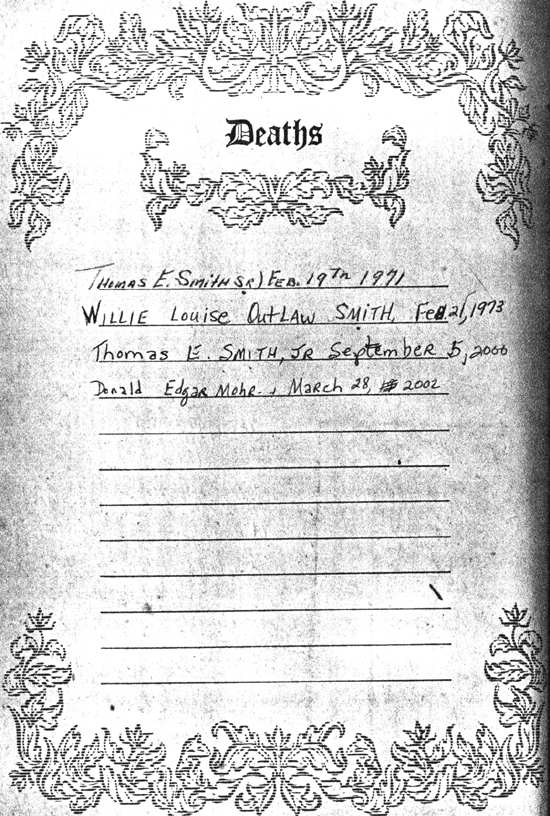 Deaths
Thomas E. Smith Sr) Feb. 19Th 1971
WILLIE Louise OutLAW SMITH, Feb 21, 1973
Thomas E. SMITH, JR September 5, 2000
Donald Edgar Mohr, March 28, 2002